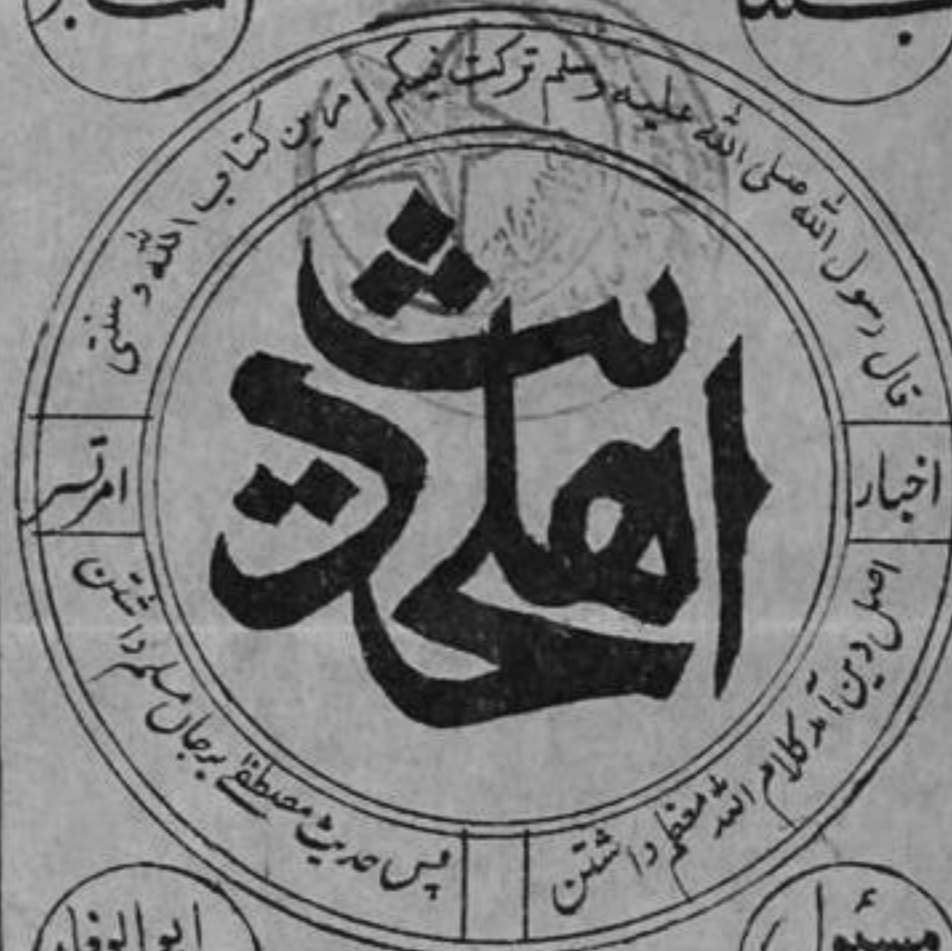 قال رسول الله صلى الله عليه وسلم تركت فيكم امرين كتاب الله و سنتى
اخبار
اهلحديث
امرتسر
اصل دین آمد کلام اللہ معظم داشتن
پس حدیث مصطفےٰ برجاں مسلم داشتن
مسئول
ابوالوفاء